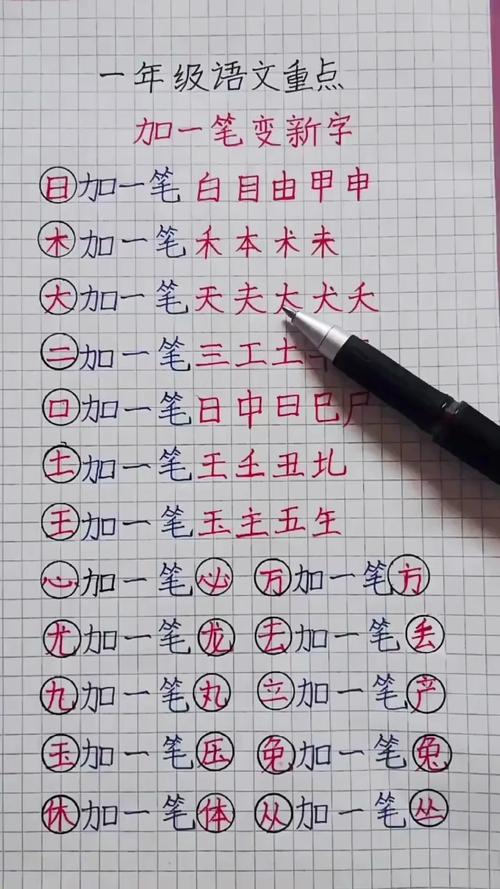 一年级语文重点
加一笔变新字
日加一笔 白目由甲申
木加一笔 禾本术未
大加一笔 天夫太犬夭
二加一笔 三工土
口加一笔 日中曰巴尸
土加一笔 王壬丑圠
王加一笔 玉主五生
心加一笔必 万加一笔方
尤加一笔龙 去加一笔丢
九加一笔丸 立加一笔产
玉加一笔压 免加一笔兔
休加一笔体 从加一笔丛